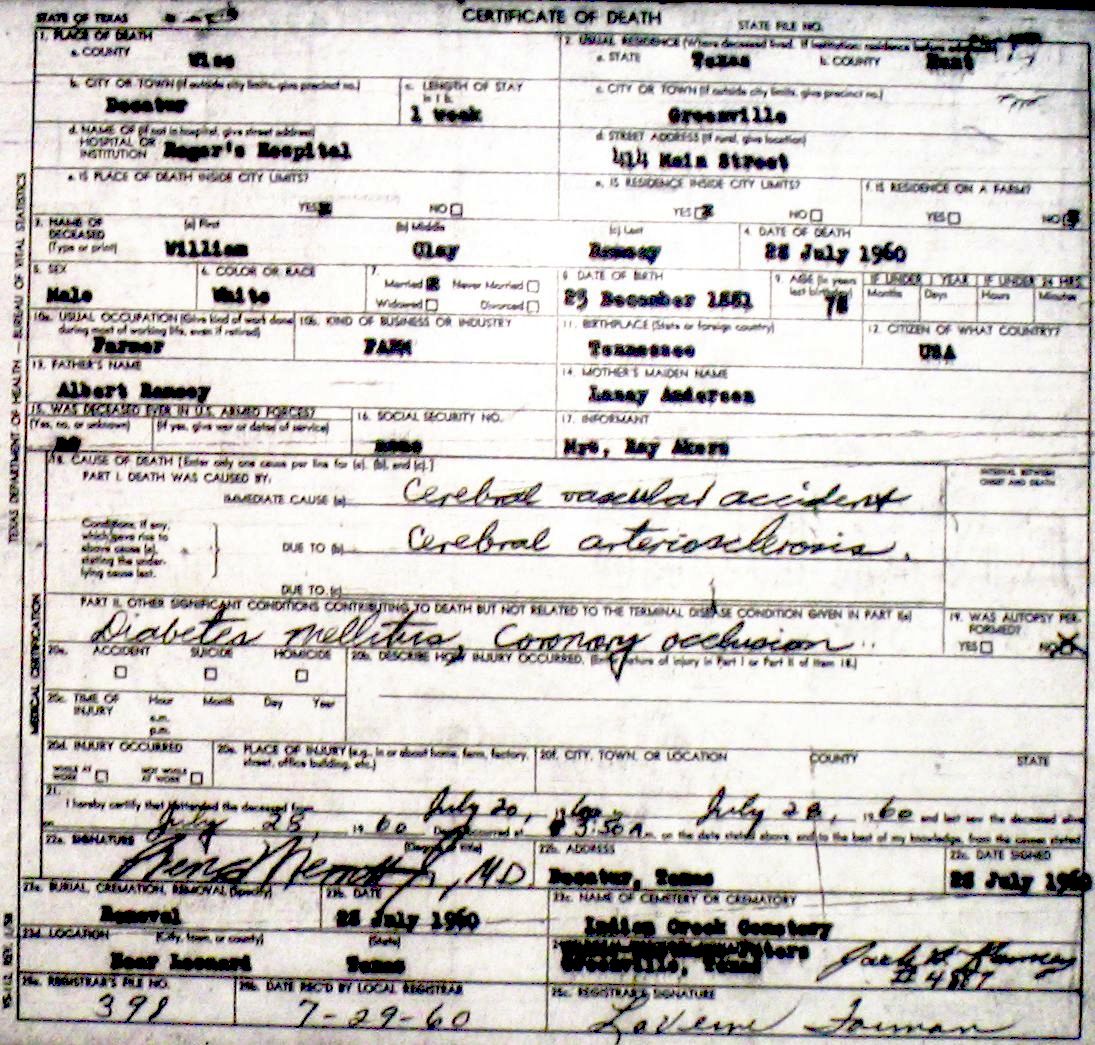 STATE OF TEXAS
CERTIFICATE OF DEATH
STATE FILE NO.
1. PLACE OF DEATH
a. COUNTY
Wise
2. USUAL RESIDENCE (Where deceased lived. If institution: residence before admission)
a. STATE Texas b. COUNTY Hunt
b. CITY OR TOWN (If outside city limits, give precinct no.)
Decatur
c. LENGTH OF STAY in 1 b.
1 week
c. CITY OR TOWN (If outside city limits, give precinct no.)
Greenville
d. NAME OF (If not in hospital, give street address) HOSPITAL OR INSTITUTION
Roger's Hospital
d. STREET ADDRESS (If rural, give location)
414 Main Street
e. IS PLACE OF DEATH INSIDE CITY LIMITS?
YES NO
e. IS RESIDENCE INSIDE CITY LIMITS?
YES NO
f. IS RESIDENCE ON A FARM?
YES NO
3. NAME OF DECEASED (Type or print)
(a) First (b) Middle (c) Last
William Clay Ramsey
4. DATE OF DEATH
28 July 1960
5. SEX
Male
6. COLOR OR RACE
White
7.
Married Never Married
Widowed Divorced
8. DATE OF BIRTH
23 December 1881
9. AGE (In years last birthday)
78
IF UNDER 1 YEAR
Months Days
IF UNDER 24 HRS.
Hours Minutes
10a. USUAL OCCUPATION (Give kind of work done during most of working life, even if retired)
Farmer
10b. KIND OF BUSINESS OR INDUSTRY
FARM
11. BIRTHPLACE (State or foreign country)
Tennessee
12. CITIZEN OF WHAT COUNTRY?
USA
13. FATHER'S NAME
Albert Ramsey
14. MOTHER'S MAIDEN NAME
Laney Anderson
15. WAS DECEASED EVER IN U.S. ARMED FORCES?
(Yes, no, or unknown) (If yes, give war or dates of service)
no
16. SOCIAL SECURITY NO.
none
17. INFORMANT
Mrs, Ray Akers
18. CAUSE OF DEATH [Enter only one cause per line for (a), (b), and (c).]
PART I. DEATH WAS CAUSED BY:
IMMEDIATE CAUSE (a) Cerebral vascular accident
INTERVAL BETWEEN ONSET AND DEATH
Conditions, if any, which gave rise to above cause (a), stating the underlying cause last.
DUE TO (b) Cerebral arteriosclerosis.
DUE TO (c)
PART II. OTHER SIGNIFICANT CONDITIONS CONTRIBUTING TO DEATH BUT NOT RELATED TO THE TERMINAL DISEASE CONDITION GIVEN IN PART I(a)
Diabetes mellitus, Coronary occlusion
19. WAS AUTOPSY PERFORMED?
YES NO
20a. ACCIDENT SUICIDE HOMICIDE
20b. DESCRIBE HOW INJURY OCCURRED. (Enter nature of injury in Part I or Part II of item 18.)
20c. TIME OF INJURY
Hour Month Day Year
a.m.
p.m.
20d. INJURY OCCURRED
WHILE AT WORK NOT WHILE AT WORK
20e. PLACE OF INJURY (e.g., in or about home, farm, factory, street, office building, etc.)
20f. CITY, TOWN, OR LOCATION COUNTY STATE
21.
I hereby certify that I attended the deceased from July 20, 1960 July 28, 1960 and last saw the deceased alive
on July 28, 1960 Death occurred at 3:30 A.m. on the date stated above, and to the best of my knowledge, from the causes stated.
22a. SIGNATURE
(Degree or title)
M.D.
22b. ADDRESS
Decatur, Texas
22c. DATE SIGNED
28 July 1960
23a. BURIAL, CREMATION, REMOVAL (Specify)
Removal
23b. DATE
28 July 1960
23c. NAME OF CEMETERY OR CREMATORY
Indian Creek Cemetery
23d. LOCATION (City, town, or county) (State)
Near Leonard Texas
Peters
Greenville, Texas
4887
25a. REGISTRAR'S FILE NO.
398
25b. DATE REC'D BY LOCAL REGISTRAR
7-29-60
25c. REGISTRAR'S SIGNATURE
LaVerne Forman
TEXAS DEPARTMENT OF HEALTH - BUREAU OF VITAL STATISTICS
MEDICAL CERTIFICATION